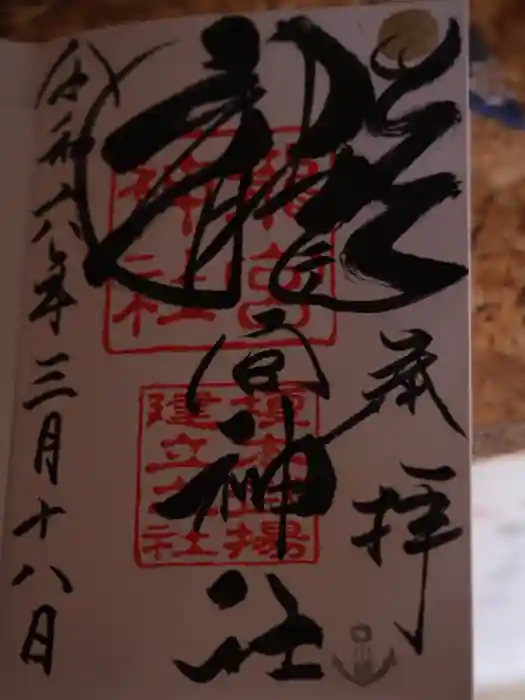 奉拝
龍宮神社
龍宮
神社
榎本武揚
建立之社
令和六年三月十八日